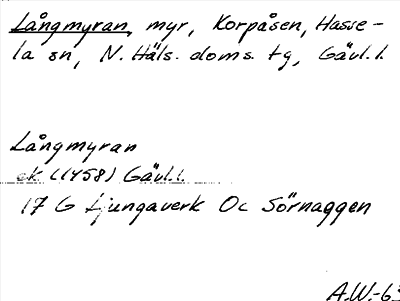 Långmyran, myr, Korpåsen, Hasse-
la sn, N. Häls. doms. tg, Gävl. l.
Långmyran
ek (1458) Gävl. l.
17 G Ljungaverk Oc Sörnaggen
A.W.-63